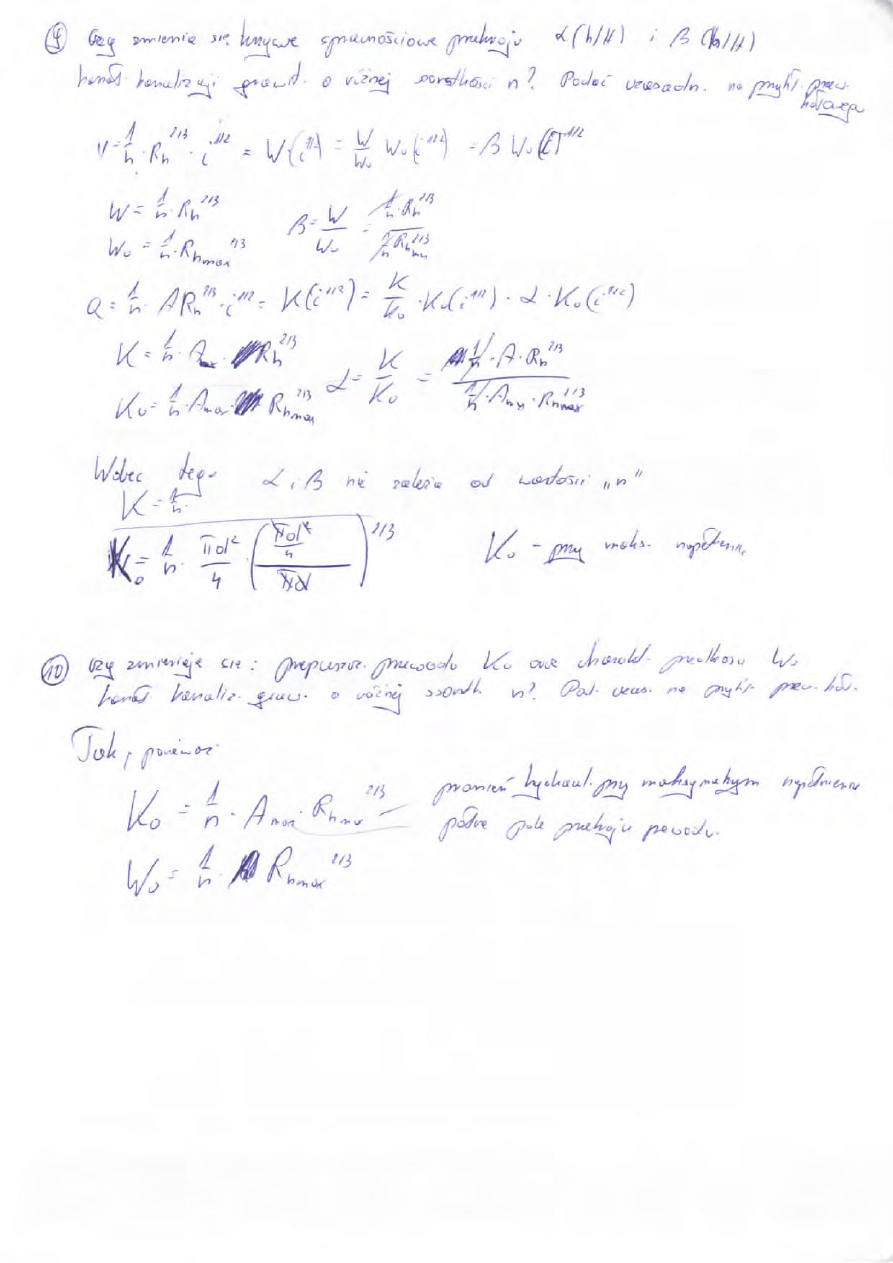 ⑨ Czy zmienia się krzywe sprawnościowe przekroju α(h/H) i β(h/H)
kanał. kanalizacji grawit. o różnej szorstkości n? Podać uzasadn. na przykł. przew.
kołowego
V = 1/n · Rh^2/3 · i^1/2 = W(i^1/2) = W/Wo Wo(i^1/2) = β Wo(i)^1/2
W = 1/n · Rh^2/3
β = W/Wo = (1/n · Rh^2/3)/(1/n Rhmax^2/3)
Wo = 1/n · Rhmax^2/3
Q = 1/n · ARh^2/3 · i^1/2 = K(i^1/2) = K/Ko · Ko(i^1/2) · α · Ko(i^1/2)
K = 1/n · A · Rh^2/3
α = K/Ko = (1/n · A · Rh^2/3)/(1/n · Amax · Rhmax^2/3)
Ko = 1/n · Amax · Rhmax^2/3
Wobec tego α i β nie zależą od wartości „n"
K = 1/n ·
Ko = 1/n · πd²/4 · ((πd²/4)/(πd))^2/3
Ko – przy maks. napełnieniu
⑩ Czy zmieniają się: przepustow. przewodu Ko oraz charakt. prędkości Wo
kanał. kanaliz. graw. o różnej szorstk. n? Pod. uzas. na przykł. przew. koł.
Tak, ponieważ
Ko = 1/n · Amax · Rhmax^2/3 – promień hydraul. przy maksymalnym napełnieniu
pełne pole przekroju przewodu.
Wo = 1/n · Rhmax^2/3